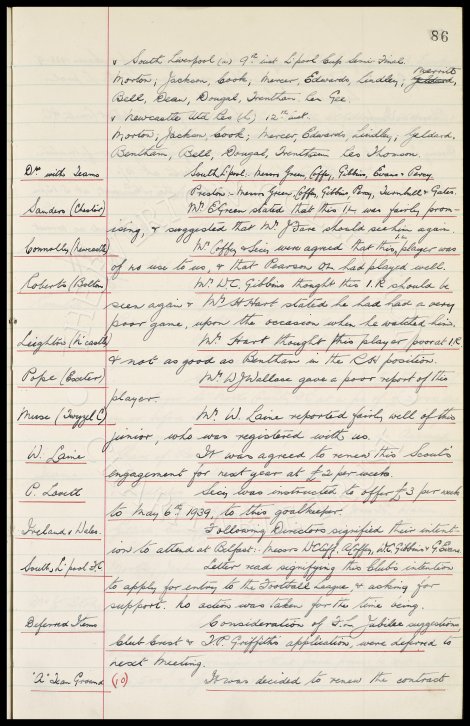 86
v South Liverpool (a) 9th inst L'pool Cup Semi Final.
Morton; Jackson, Cook; Mercer, Edwards, Lindley; Merritt
Bell, Dean, Dougal, Trentham, Geo Gee.
v Newcastle Utd Res (h) 12th inst.
Morton; Jackson, Cook; Mercer, Edwards, Lindley; Geldard,
Bentham, Bell, Dougal, Trentham Res Thomson.
Drs with Teams South L'pool. Messrs Green, Coffey, Gibbins, Evans & Percy.
Preston - Messrs Green, Coffey, Gibbins, Percy, Turnbull & Gates.
Sanders (Chester) Mr E. Green stated that this I.L. was fairly prom-
ising, & suggested that Mr J. Fare should see him again.
Connolly (Newcastle) Mr Coffey & Secy. were agreed that this player was
of no use to us, & that Pearson had played well.
Roberts (Bolton) Mr W.C. Gibbins thought this I.R. should be
seen again & Mr H. Hart stated he had had a very
poor game, upon the occasion when he watched him.
Leighton (N'castle) Mr Hart thought this player poor at I.R.
& not as good as Bentham in the R.H. position.
Pope (Exeter) Mr W.J. Wallace gave a poor report of this
player.
Muse (Twyzel C) Mr. W. Laine reported fairly well of this
junior, who was registered with us.
W. Laine It was agreed to renew this Scout's
engagement for next year at £2 per week.
P. Lovett Secy was instructed to offer £3 per week
to May 6th 1939, to this goalkeeper.
Ireland v Wales. Following Directors signified their intent-
ion to attend at Belfast: Messrs W. Cuff, A. Coffey, W.C. Gibbins & G. Evans.
South L'pool F.C. Letter read signifying this Club's intention
to apply for entry to the Football League, & asking for
support. No action was taken for the time being.
Deferred Items Consideration of F.L. Jubilee suggestions,
Club Crest & T.P. Griffiths application, were deferred to
next meeting.
'A' Team Ground (10) It was decided to renew the contract